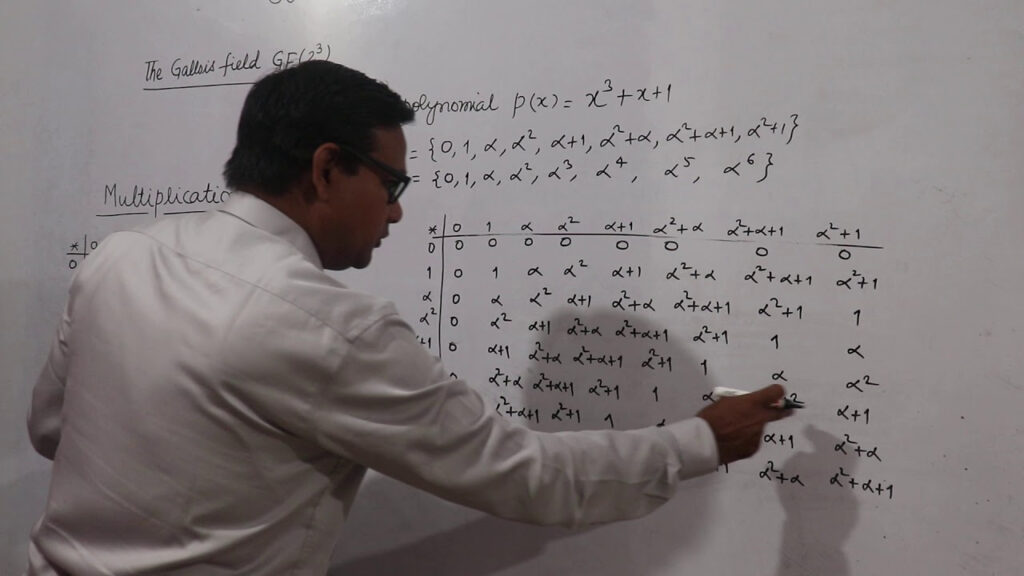 The Gallois field GF(2³)
polynomial p(x) = x³+x+1
= {0, 1, α, α², α+1, α²+α, α²+α+1, α²+1}
= {0, 1, α, α², α³, α⁴, α⁵, α⁶}
Multiplication
* 0
0
* 0 1 α α² α+1 α²+α α²+α+1 α²+1
0 0 0 0 0 0 0 0 0
1 0 1 α α² α+1 α²+α α²+α+1 α²+1
α 0 α α² α+1 α²+α α²+α+1 α²+1 1
α² 0 α² α+1 α²+α α²+α+1 α²+1 1 α
+1 0 α+1 α²+α α²+α+1 α²+1 1 α α²
0 α²+α α²+α+1 α²+1 1 α α² α+1
α²+α+1 α²+1 1 α α+1 α²+α
α²+α α²+α+1